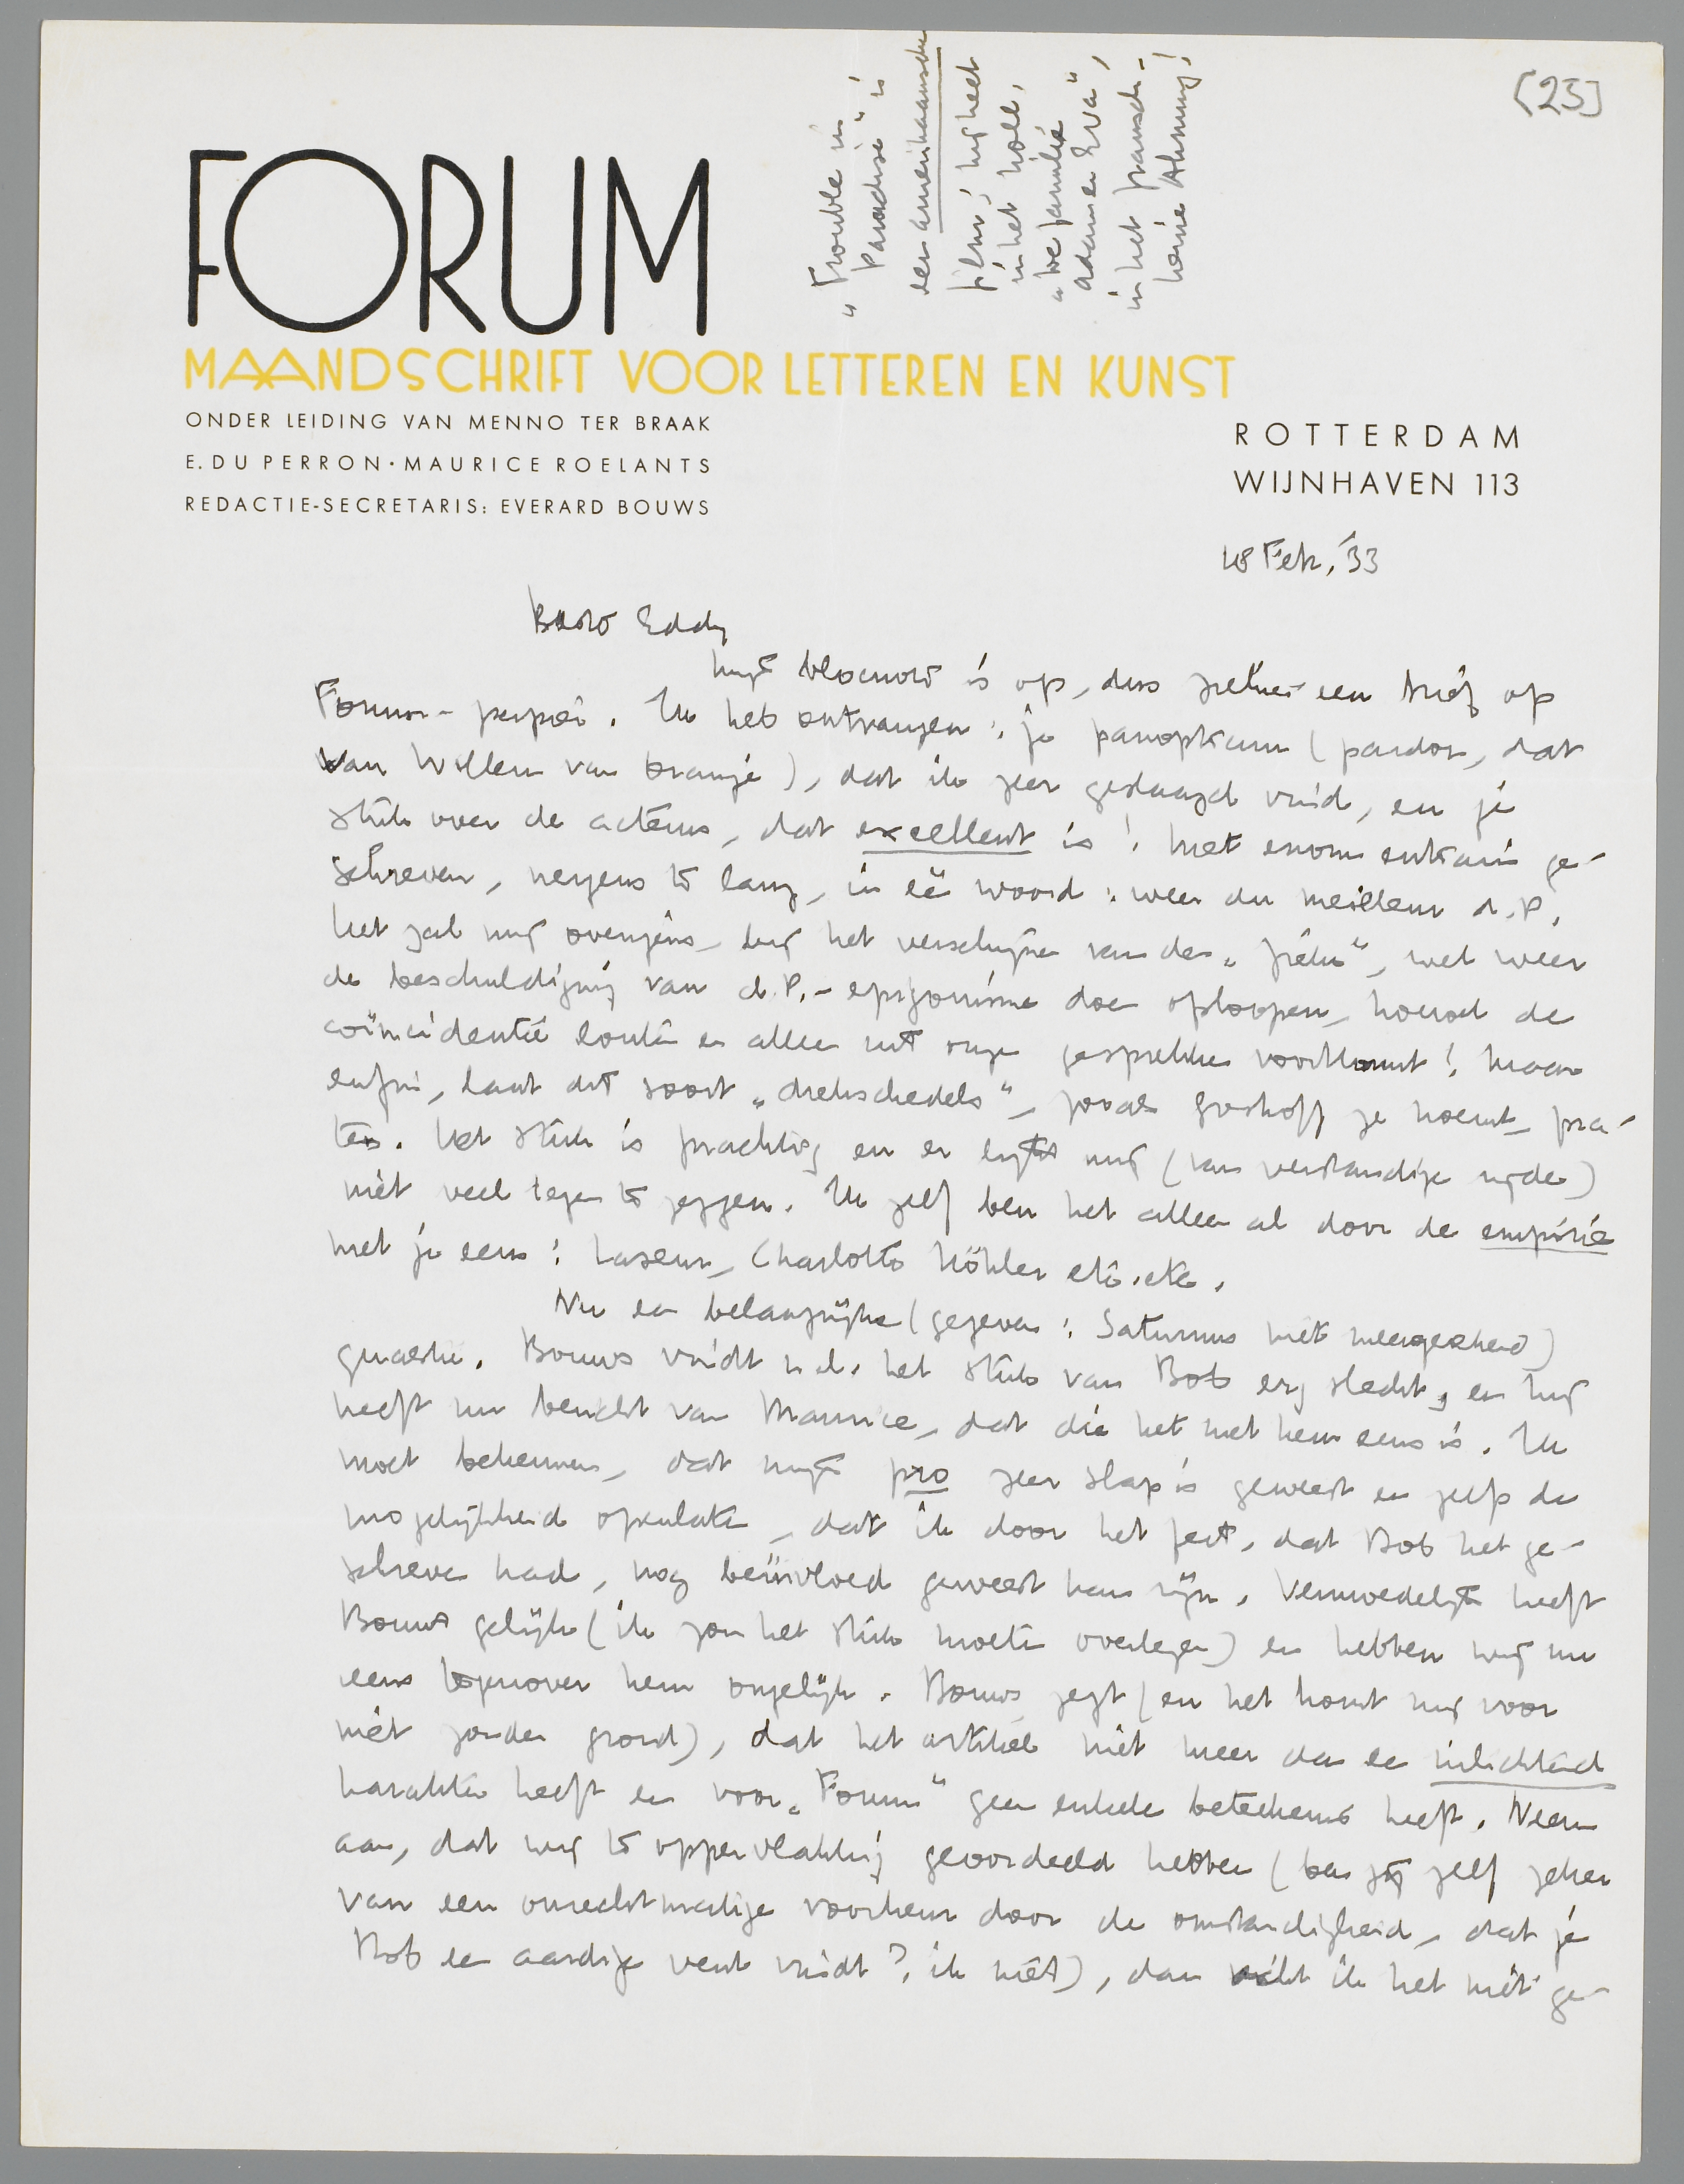 [23]
„Trouble in
Paradise" is
een amerikaansche
film; hij heet
in het holl.
„De familie
Adam en Eva",
in het fransch -
keine Ahnung!
FORUM
MAANDSCHRIFT VOOR LETTEREN EN KUNST
ONDER LEIDING VAN MENNO TER BRAAK
E. DU PERRON · MAURICE ROELANTS
REDACTIE-SECRETARIS: EVERARD BOUWS
ROTTERDAM
WIJNHAVEN 113
18 Febr. '33
Beste Eddy
Mijn blocnote is op, dus hier een brief op
Forum-papier. Ik heb ontvangen: je panopticum (pardon, dat
van Willem van Oranje), dat ik zeer geslaagd vind, en je
stuk over de acteurs, dat excellent is! Met enorm entrain ge-
schreven, nergens te lang, in één woord: weer du meilleur d.P.
Het zal mij overigens, bij het verschijnen van de „ ", wel weer
de beschuldiging van d.P.-epigonisme doen oploopen, hoewel de
coïncidentie louter en alleen uit onze gesprekken voortkomt! Maar
enfin, laat dit soort „drekschedels", zooals Greshoff ze noemt, pra-
ten. Het stuk is prachtig en er lijkt mij (van verstandige zijde)
niet veel tegen te zeggen. Ik zelf ben het alleen al door de empirie
met je eens: Laseur, Charlotte Köhler etc. etc.
Nu een belangrijke (gegeven: Saturnus niet meegerekend)
quaestie. Bouws vindt n.l. het stuk van Bob erg slecht, en hij
heeft nu bericht van Maurice, dat die het met hem eens is. Ik
moet bekennen, dat mijn pro zeer slap is geweest en zelfs de
mogelijkheid openlaten, dat ik door het feit, dat Bob het ge-
schreven had, nog beïnvloed geweest kan zijn. Vermoedelijk heeft
Bouws gelijk (ik zou het stuk moeten overlezen) en hebben wij nu
eens tegenover hem ongelijk. Bouws zegt (en het komt mij voor
niet zonder grond), dat het artikel niet meer dan een inlichtend
karakter heeft en voor „Forum" geen enkele beteekenis heeft. Neem
aan, dat wij te oppervlakkig geoordeeld hebben (ben jij zelf zeker
van een onrechtmatige voorkeur door de omstandigheid, dat je
Bob een aardige vent vindt? ik niet), dan vind ik het niet ge-